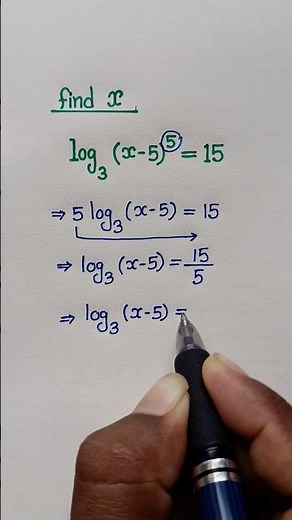 find x
log₃ (x-5)⁵ = 15
⇒ 5 log₃ (x-5) = 15
⇒ log₃ (x-5) = 15/5
⇒ log₃ (x-5) =